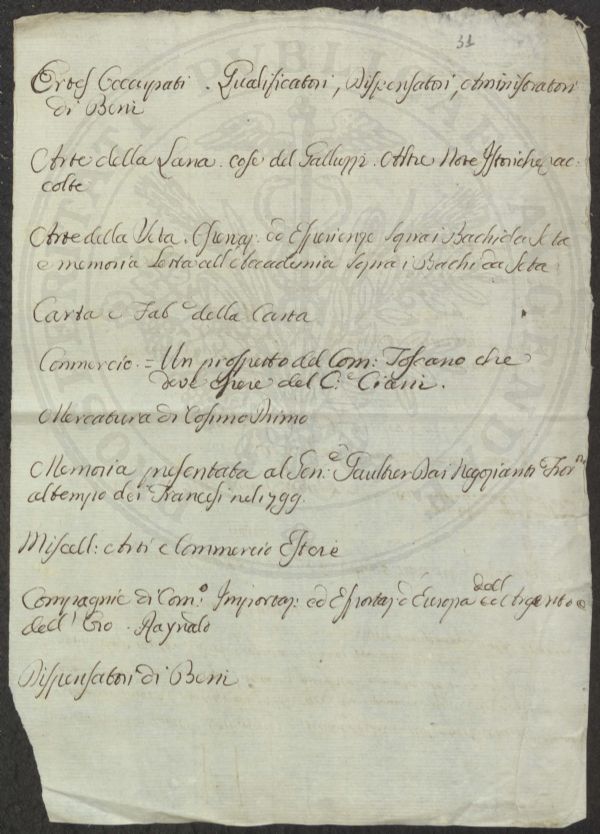 31
Ortes Occupati. Qualificatori, Dispensatori, Aministratori
di Beni
Arte della Lana. cose del Galluzzi. Altre Note Istoriche rac=
colte
Arte della Seta. ed Esperienze sopra i Bachi da Seta
e memoria Letta all'Accademia sopra i Bachi da Seta
Carta e Fab.e della Carta
Commercio = Un prospetto del Com: Toscano che
deve essere del C.e Ciani.
Mercatura di Cosimo Primo
Memoria presentata al Gen.e Gaultier dai Negozianti Fior.ni
al tempo dei Francesi nel 1799.
Miscell: Arti e Commercio Estere
Compagnie di Com.o Importaz: ed Esportaz: d'Europa dell'Argento e
dell'Oro. Raynald
Dispensatori di Beni